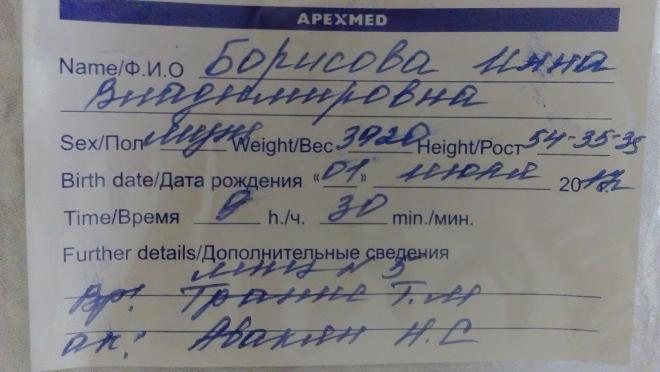 APEXMED
Name/Ф.И.О Борисова Инна
Владимировна
Sex/Пол муж Weight/Вес 3920 Height/Рост 54-35-35
Birth date/Дата рождения «01» июля 2017г.
Time/Время 0 h./ч. 30 min./мин.
Further details/Дополнительные сведения
№ 5
Вр: Т.М
ак: Авакян Н.С